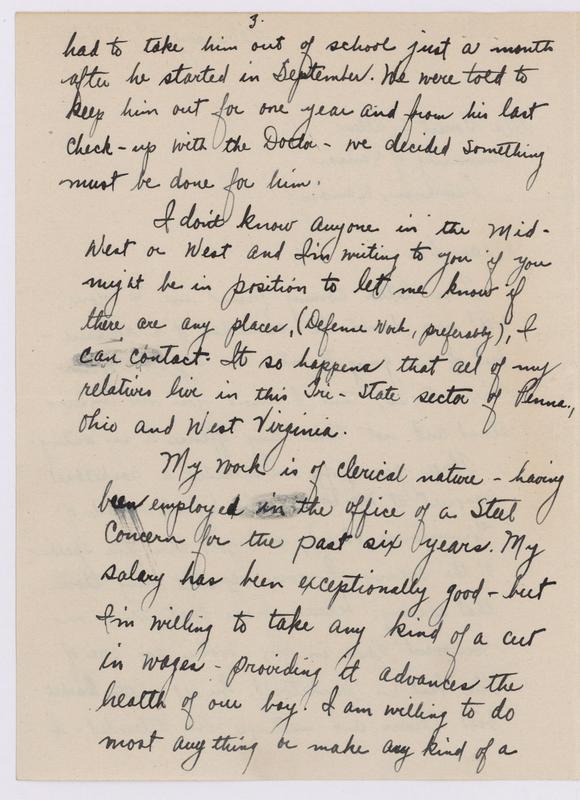 3.
had to take him out of school just a month
after he started in September. We were told to
keep him out for one year and from his last
check-up with the Doctor - we decided something
must be done for him.
I don't know anyone in the Mid-
West or West and I'm writing to you if you
might be in position to let me know if
there are any places, (Defense Work, preferably), I
can contact. It so happens that all of my
relatives live in this Tri-State sector of Penna.,
Ohio and West Virginia.
My work is of clerical nature - having
been employed in the office of a Steel
Concern for the past six years. My
salary has been exceptionally good - but
I'm willing to take any kind of a cut
in wages - providing it advances the
health of our boy. I am willing to do
most any thing or make any kind of a